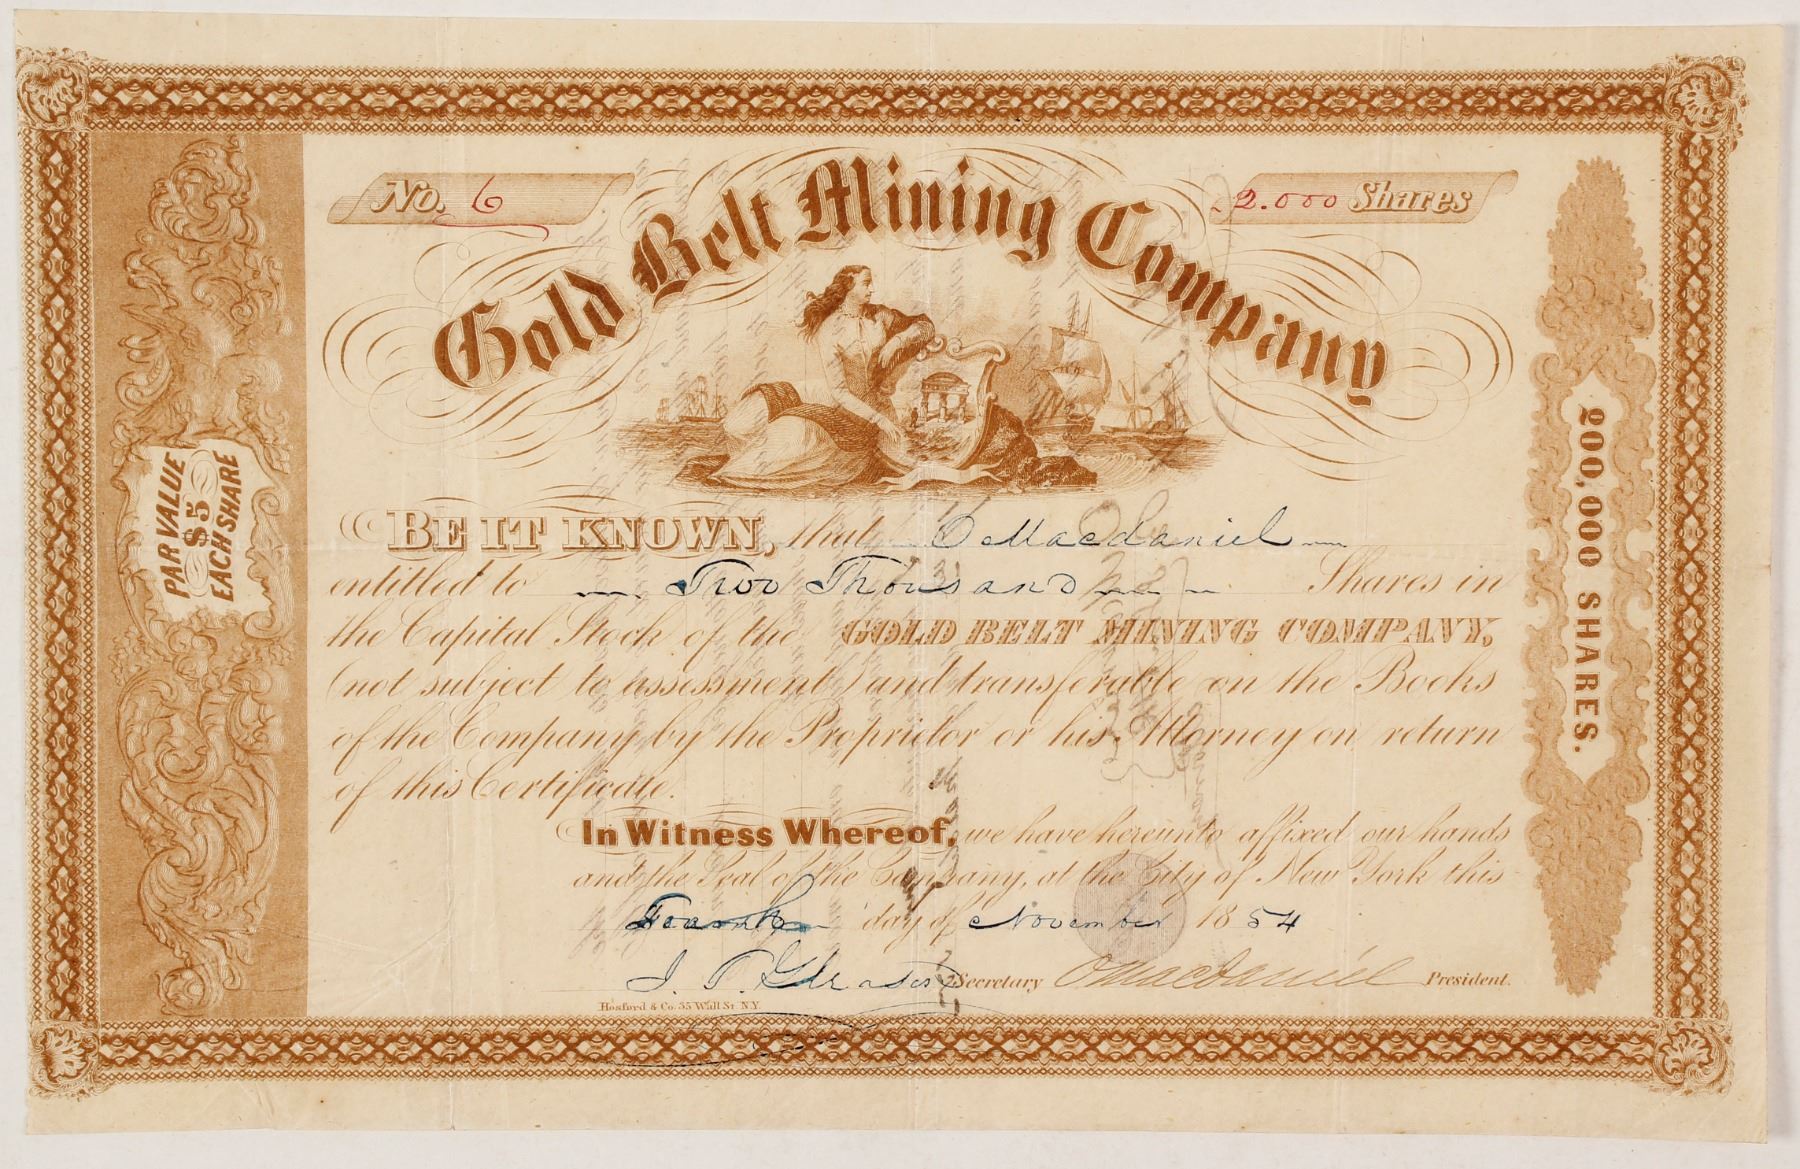 No. 6
2.000 Shares
Gold Belt Mining Company
PAR VALUE
$5
EACH SHARE
200,000 SHARES.
BE IT KNOWN, that O Macdaniel
entitled to Two Thousand Shares in
the Capital Stock of the GOLD BELT MINING COMPANY,
(not subject to assessment) and transferable on the Books
of the Company by the Proprietor or his Attorney on return
of this Certificate.
In Witness Whereof, we have hereunto affixed our hands
and the Seal of the Company, at the City of New York this
day of November 1854
Secretary O MacDaniel President.
Hosford & Co. 35 Wall St. N.Y.